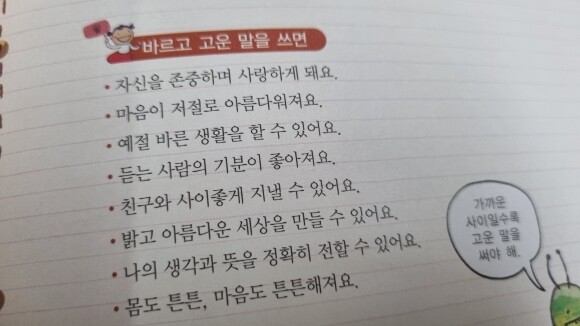 바르고 고운 말을 쓰면
• 자신을 존중하며 사랑하게 돼요.
• 마음이 저절로 아름다워져요.
• 예절 바른 생활을 할 수 있어요.
• 듣는 사람의 기분이 좋아져요.
• 친구와 사이좋게 지낼 수 있어요.
• 밝고 아름다운 세상을 만들 수 있어요.
• 나의 생각과 뜻을 정확히 전할 수 있어요.
• 몸도 튼튼, 마음도 튼튼해져요.
가까운
사이일수록
고운 말을
써야 해.